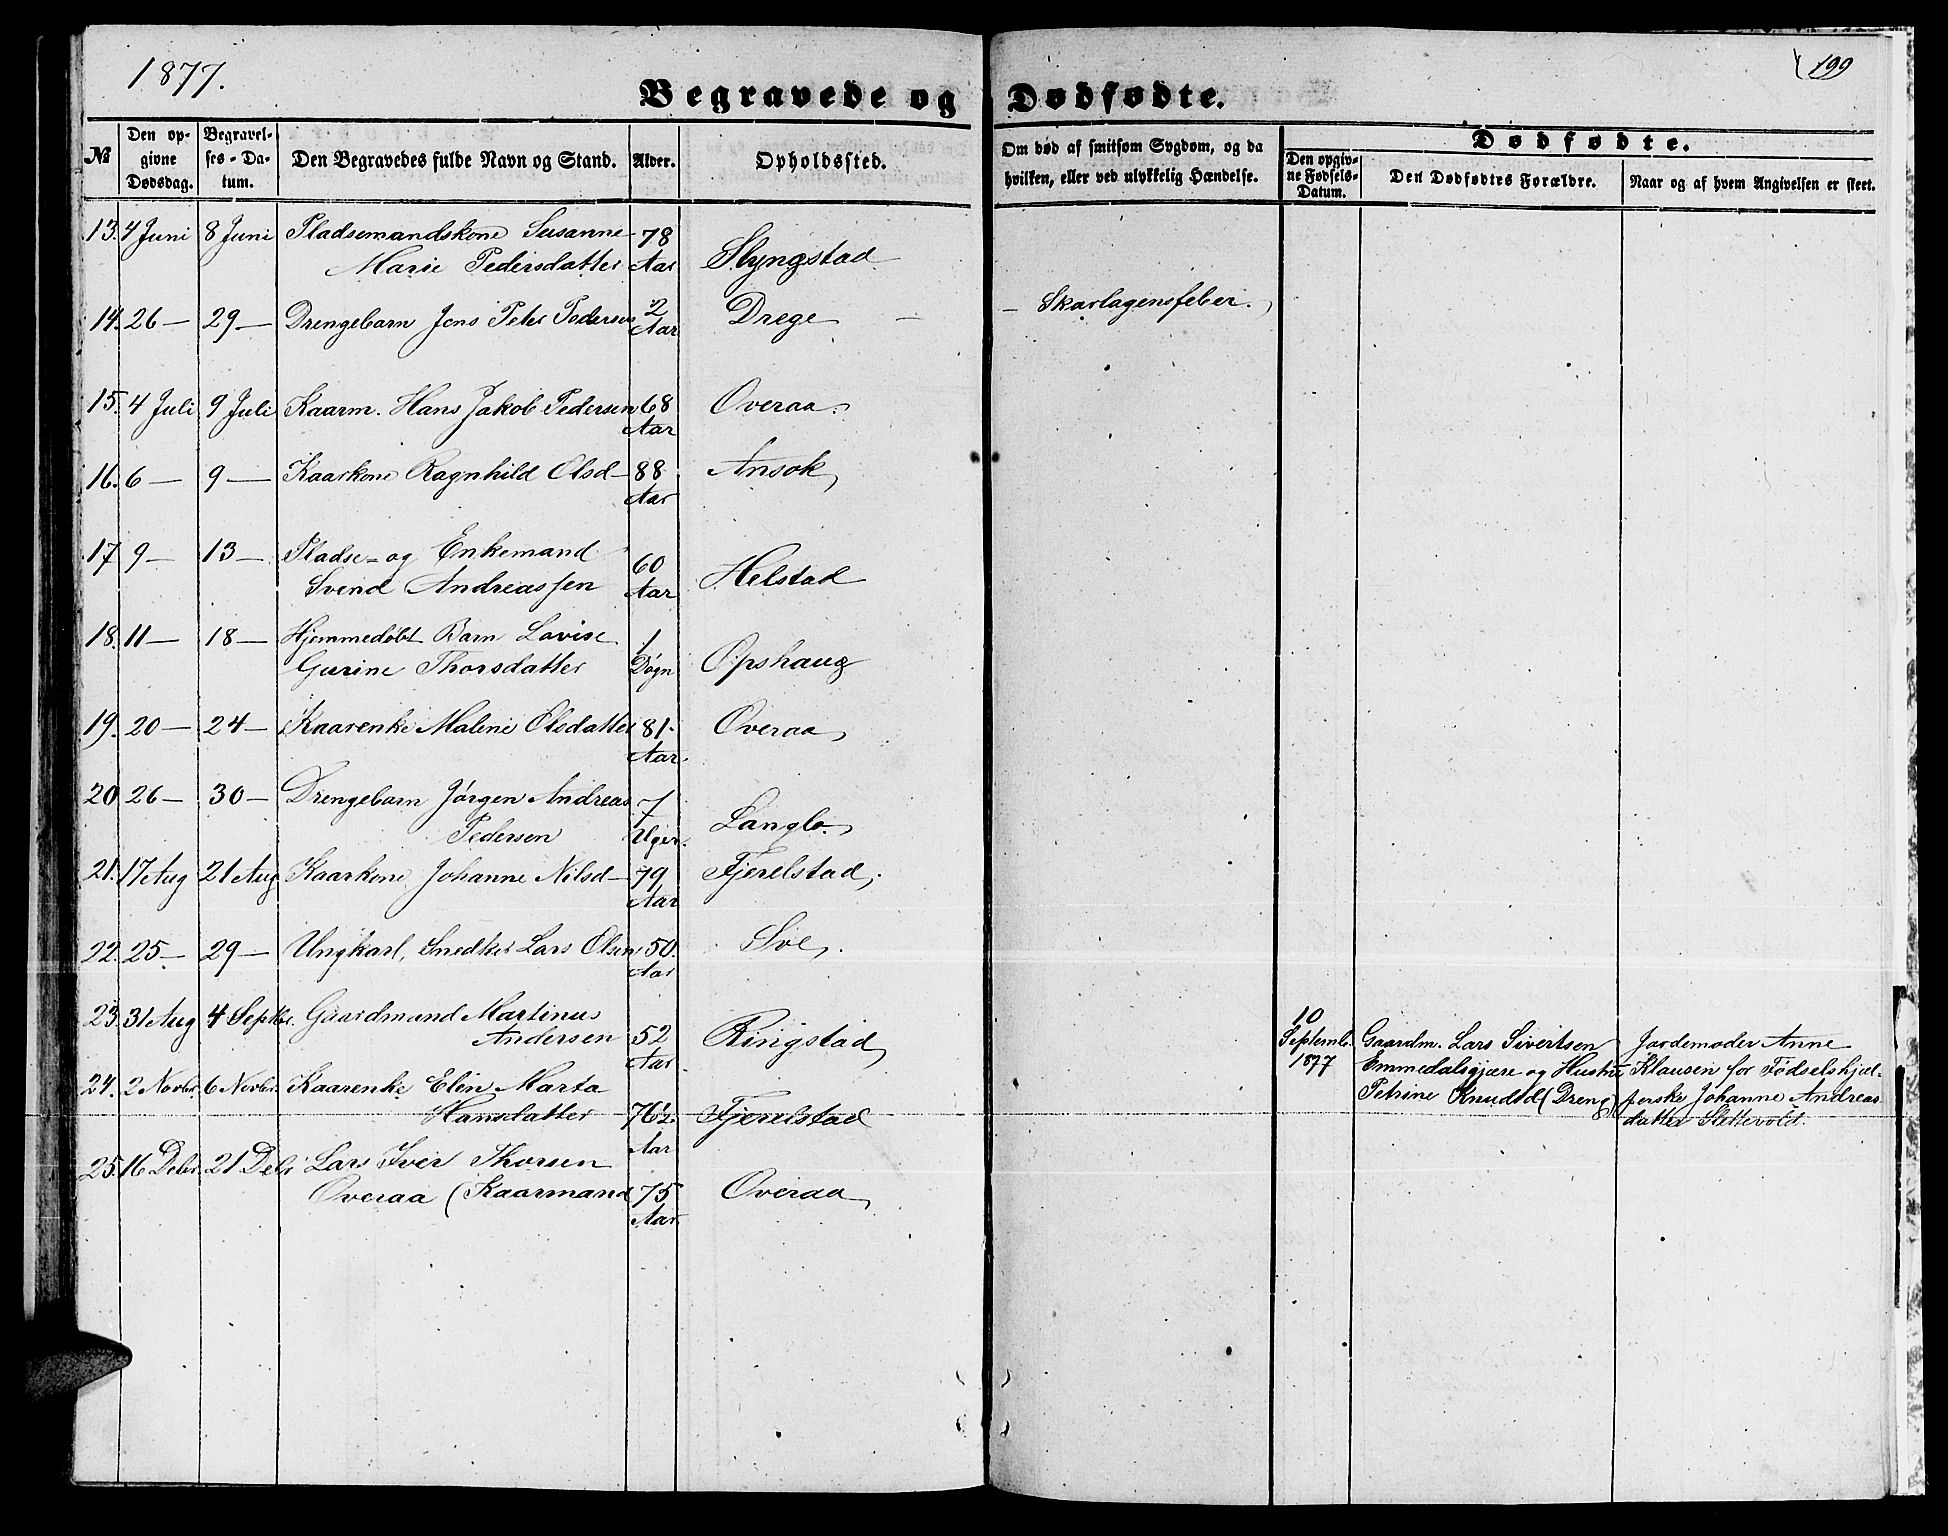 1877.
199
Begravede og Dødfødte.
№
Den op-
givne
Dødsdag.
Begravel-
ses-Da-
tum.
Den Begravedes fulde Navn og Stand.
Alder.
Opholdssted.
Om død af smitsom Sygdom, og da
hvilken, eller ved ulykkelig Hændelse.
Dødfødte.
Den opgiv-
ne Fødsels-
Datum.
Den Dødfødtes Forældre.
Naar og af hvem Angivelsen er skeet.
13. 4 Juni 8 Juni Pladsemandskone Susanne 78
Marie Pedersdatter Aar Slyngstad
14. 26 — 29 — Drengebarn Jens Peter Pedersen 2 Aar Drege — Skarlagensfeber.
15. 4 Juli 9 Juli Kaarm. Hans Jakob Pedersen 68 Overaa.
Aar
16. 6 — 9 — Kaarkone Ragnhild Olsd— 88 Ansok
Aar
17 9 — 13 — Pladse- og Enkemand 60
Svend Andreassen Aar Helstad
18. 11 — 18 — Hjemmedøbt Barn Lovise 1
Gurine Thorsdatter Døgn Opshaug
19. 20 — 24 — Kaarenke Malene Olsdatter 81. Overaa
Aar.
20 26 — 30 — Drengebarn Jørgen Andreas 7
Pedersen Uger. Langlo.
21. 17 Aug 21 Aug Kaarkone Johanne Nilsd— 79 Fjerelstad,
Aar
22. 25 — 29 — Ungkarl, Snedker Lars Olsen 50. Sve.
Aar
23. 31 Aug 4 Septbr. Gaardmand Martinus
Andersen 52 Ringstad
Aar
24. 2 Novbr. 6 Novbr. Kaarenke Elen Marta
Hansdatter 76½ Fjerelstad
Aar
25. 16 Debr. 21 Debr Lars Iver Thorsen
Overaa (Kaarmand 75 Overaa
Aar.
10
Septemb.
1877
Gaardm. Lars Sivertsen
Emmedalsgjære og Hustru
Petrine Knudsd (Dreng)
Jordemoder Anne
Klausen for Fødselshjæl-
perske Johanne Andreas
datter Slettevold.